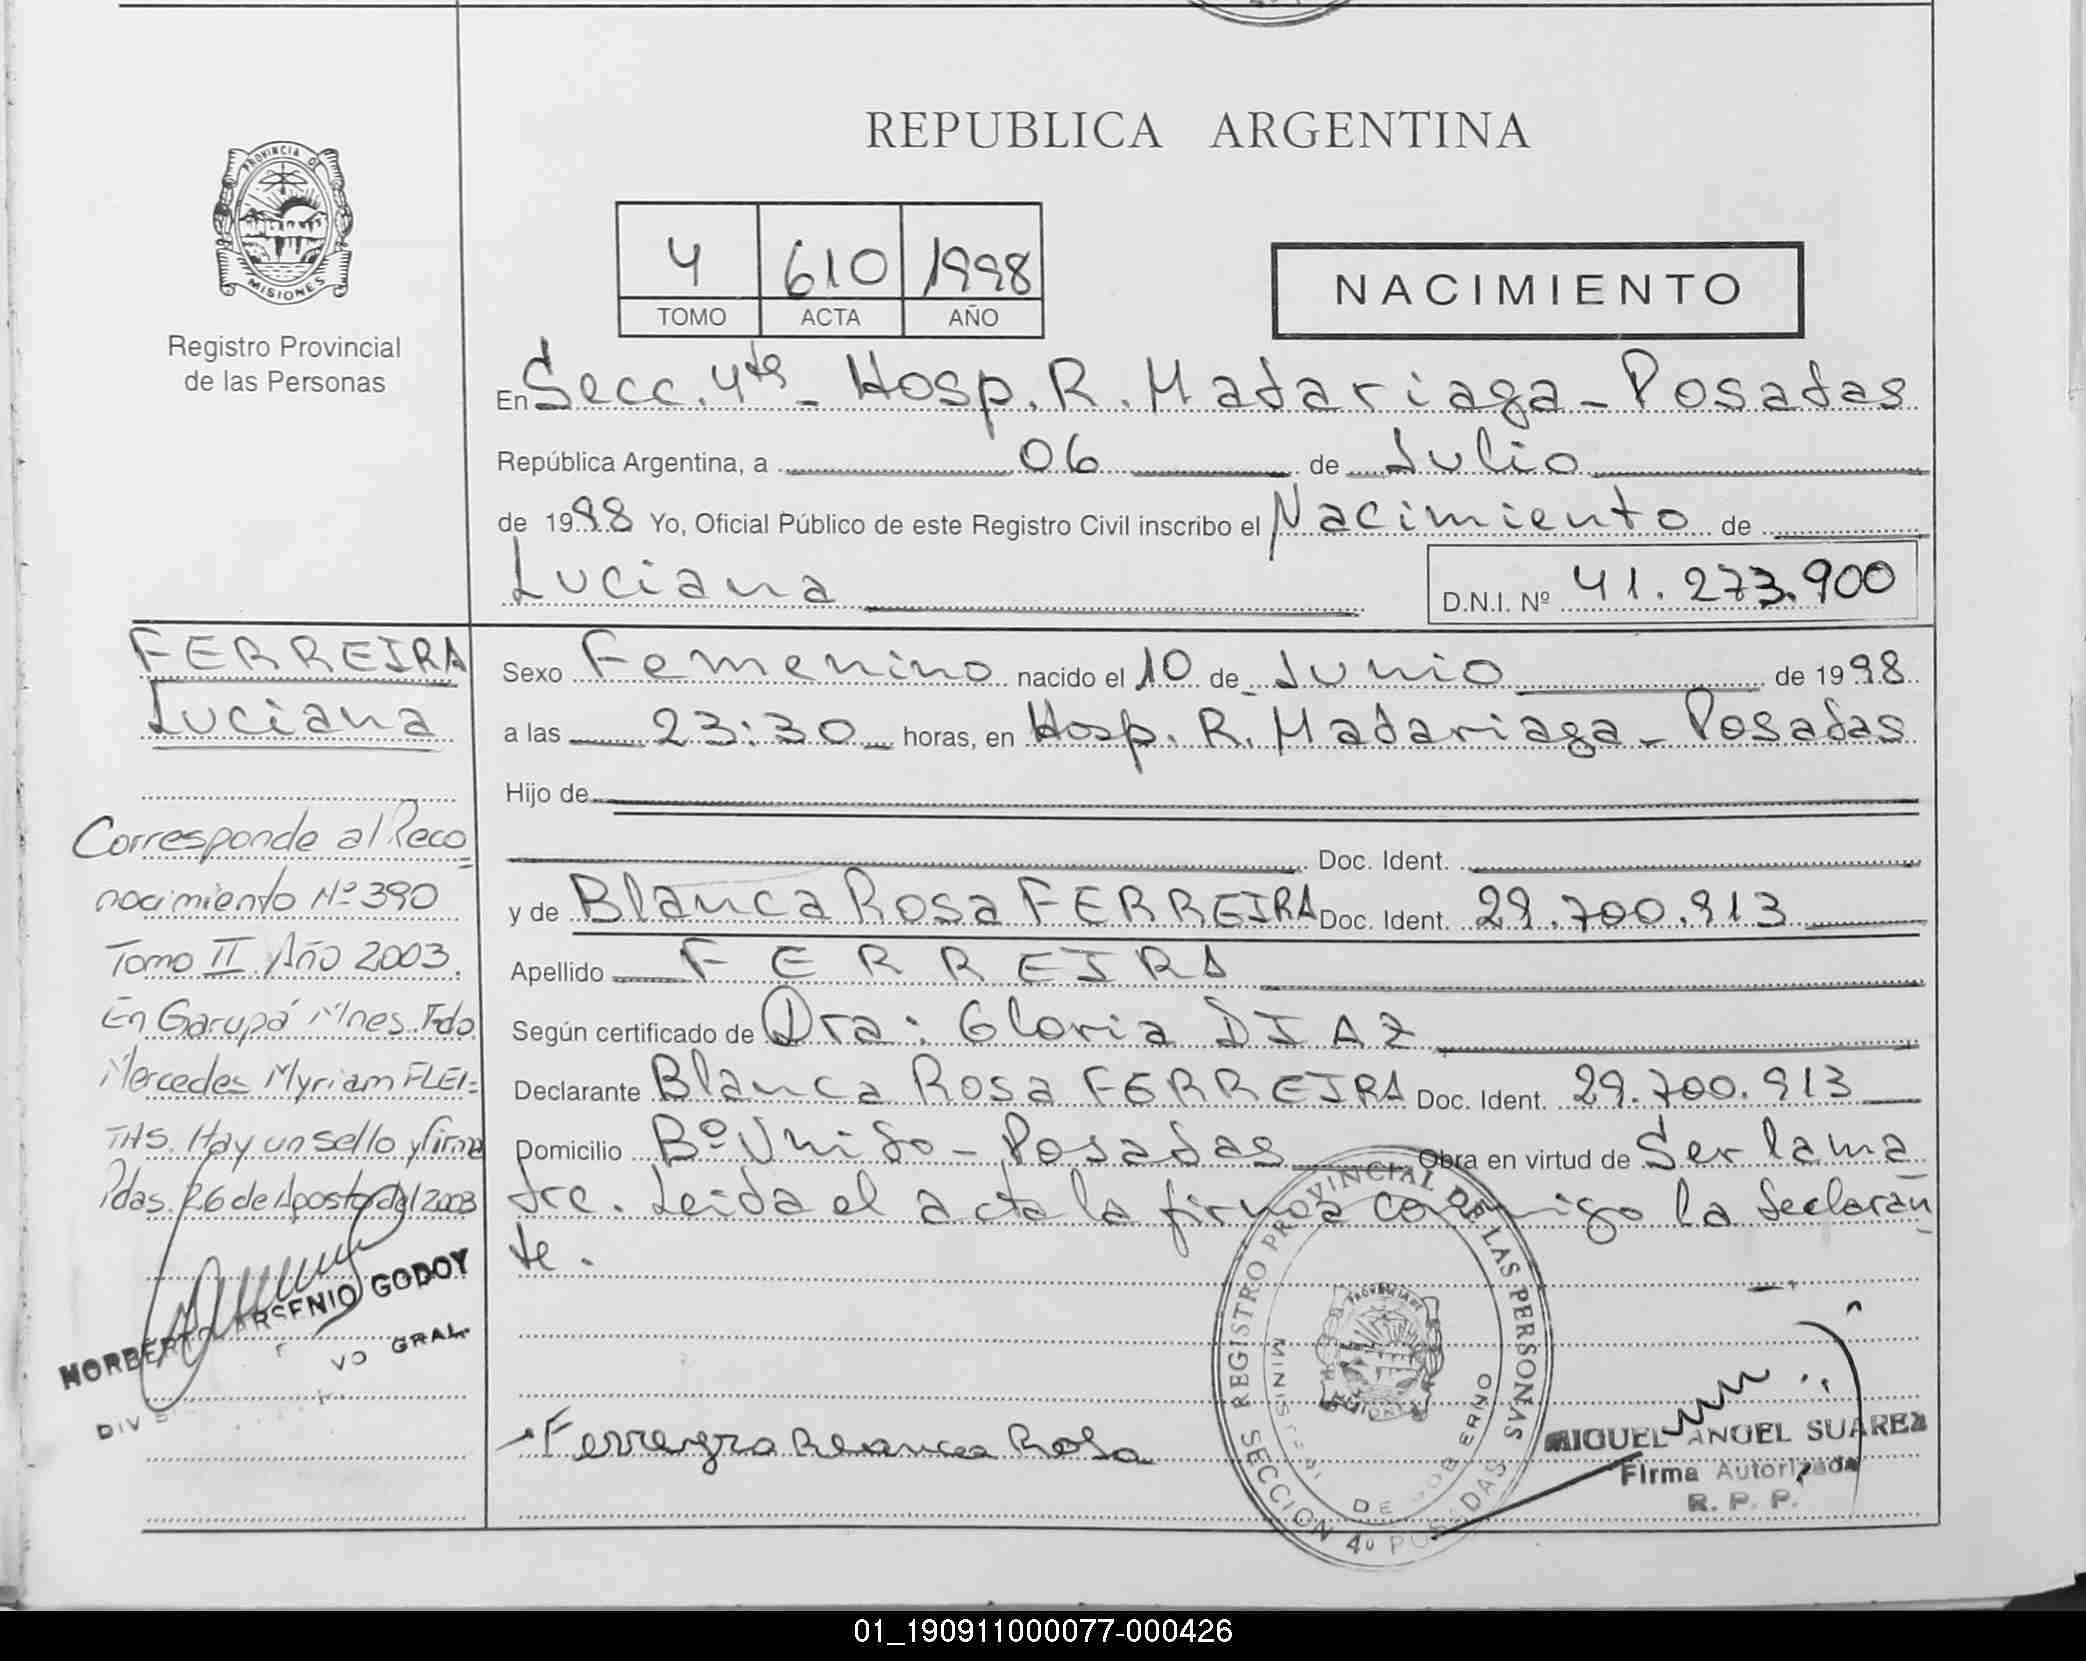 REPUBLICA ARGENTINA
PROVINCIA DE
MISIONES
Registro Provincial
de las Personas
4 610 1998
TOMO ACTA AÑO
NACIMIENTO
En Secc. 4ta - Hosp. R. Madariaga - Posadas
República Argentina, a 06 de Julio
de 1998 Yo, Oficial Público de este Registro Civil inscribo el Nacimiento de
Luciana
D.N.I. Nº 41.273.900
FERREIRA
Luciana
Corresponde al Reco
nocimiento Nº 390
Tomo II Año 2003.
En Garupá Mnes. Fdo
Mercedes Myriam FLEI=
TAS. Hay un sello y firma
Pdas. 26 de Agosto del 2003
NORBERTO ARSENIO GODOY
GRAL.
Sexo Femenino nacido el 10 de Junio de 1998
a las 23:30 horas, en Hosp. R. Madariaga - Posadas
Hijo de
Doc. Ident.
y de Blanca Rosa FERREIRA Doc. Ident. 29.700.913
Apellido FERREIRA
Según certificado de Dra: Gloria DIAZ
Declarante Blanca Rosa FERREIRA Doc. Ident. 29.700.913
Domicilio Bº Unido - Posadas Obra en virtud de Ser la ma
dre. Leida el acta la firma conmigo la declaran
te.
Ferreyra Blanca Rosa
REGISTRO PROVINCIAL DE LAS PERSONAS
SECCION 4º POSADAS
MINISTERIO DE GOBIERNO
MIGUEL ANGEL SUAREZ
Firma Autorizada
R. P. P.
01_190911000077-000426